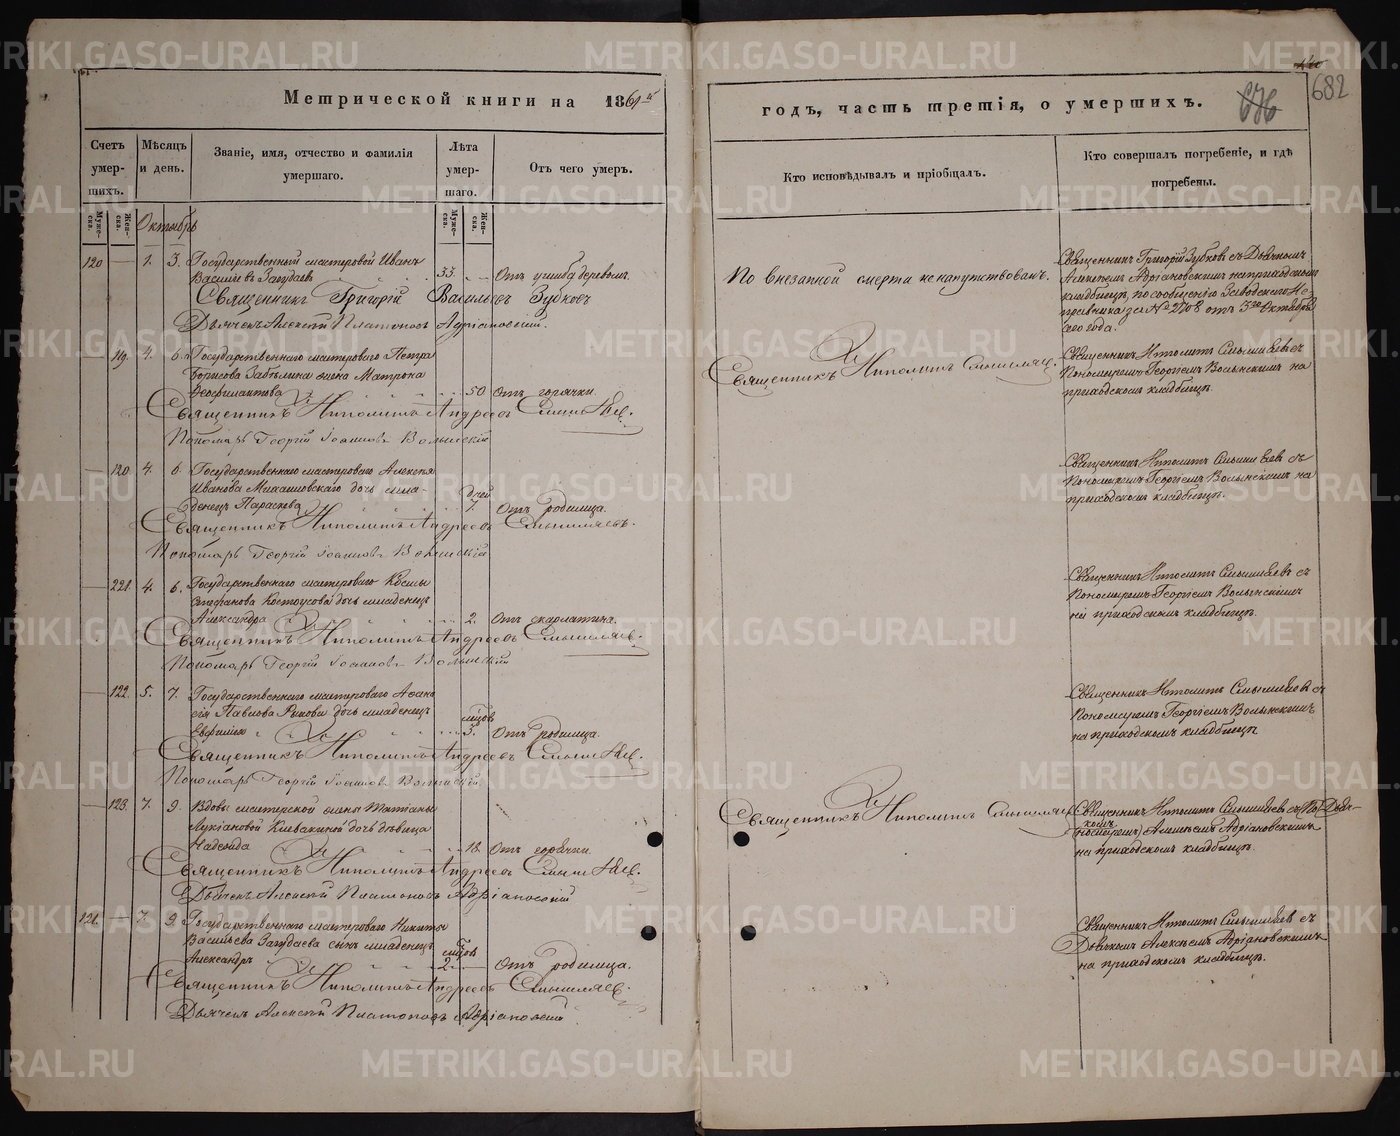 Метрической книги на 1861й
Счетъ умер-шихъ.
Муже-ска.
Жен-ска.
Мѣсяцъ и день.
Званіе, имя, отчество и фамилія умершаго.
Лѣта умер-шаго.
Муже-ска.
Жен-ска.
Отъ чего умеръ.
Октябрь
120 — 1. 3. Государственный мастеровой Иванъ
Васильевъ Загудаевъ 33. — Отъ ушиба деревомъ.
Священникъ Григорій Васильевъ Зубковъ
Дьячекъ Алексій Платоновъ Адріановскій.
— 119. 4. 6. Государственнаго мастероваго Петра
Борисова Забѣлина жена Матрона
Феофилактова 50 Отъ горячки.
Священникъ Ипполитъ Андреевъ Смышляев.
Пономарь Георгій Іоанновъ Волынскій
— 120. 4. 6. Государственнаго мастероваго Алексѣя
Иванова Михайловскаго дочь мла-
денецъ Параскева дней 7. Отъ родимца.
Священникъ Ипполитъ Андреевъ Смышляевъ.
Пономарь Георгій Іоанновъ Волынскій
— 221. 4. 6. Государственнаго мастероваго Козьмы
Стефанова Костоусова дочь младенецъ
Александра 2. Отъ скарлатина.
Священникъ Ипполитъ Андреевъ Смышляев.
Пономарь Георгій Іоанновъ Волынскій
— 122. 5. 7. Государственнаго мастероваго Афана
сія Павлова дочь младенецъ
Евфимія мѣсцов 3. Отъ родимца.
Священникъ Ипполитъ Андреевъ Смышляев.
Пономарь Георгій Іоанновъ Волынскій
— 123. 7. 9. Вдовы мастерской жены Татіаны
Лукіановой Клевакиной дочь дѣвица
Надежда 18. Отъ горячки.
Священникъ Ипполитъ Андреевъ Смышляев.
Дьячекъ Алексій Платоновъ Адріановскій
121. — 7. 9. Государственнаго мастероваго Никиты
Васильева Загудаева сынъ младенецъ
Александръ мѣсцов 2. — Отъ родимца.
Священникъ Ипполитъ Андреевъ Смышляев
Дьячекъ Алексій Платоновъ Адріановскій
годъ, часть третія, о умершихъ.
682
Кто исповѣдывалъ и пріобщалъ.
Кто совершалъ погребеніе, и гдѣ погребены.
По внезапной смерти ненапутствованъ.
Священникъ Григорій Зубковъ съ Дьячкомъ
Алексѣемъ Адріановскимъ на приходскомъ
кладбищѣ, по сообщенію Заводскаго Ис-
правника за № 2708 отъ 3го Октября
сего года.
Священникъ Ипполитъ Смышляев.
Священникъ Ипполитъ Смышляевъ съ
Пономаремъ Георгіемъ Волынскимъ на
приходскомъ кладбищѣ.
Священникъ Ипполитъ Смышляевъ съ
Пономаремъ Георгіемъ Волынскимъ на
приходскомъ кладбищѣ.
Священникъ Ипполитъ Смышляевъ съ
Пономаремъ Георгіемъ Волынскимъ
на приходскомъ кладбищѣ.
Священникъ Ипполитъ Смышляевъ съ
Пономаремъ Георгіемъ Волынскимъ
на приходскомъ кладбищѣ
Священникъ Ипполитъ Смышляев
Священникъ Ипполитъ Смышляевъ съ Дьяч-
комъ
(Пономаремъ) Алексѣемъ Адріановскимъ
на приходскомъ кладбищѣ.
Священникъ Ипполитъ Смышляевъ съ
Дьячкомъ Алексѣемъ Адріановскимъ
на приходскомъ кладбищѣ.
METRIKI.GASO-URAL.RU